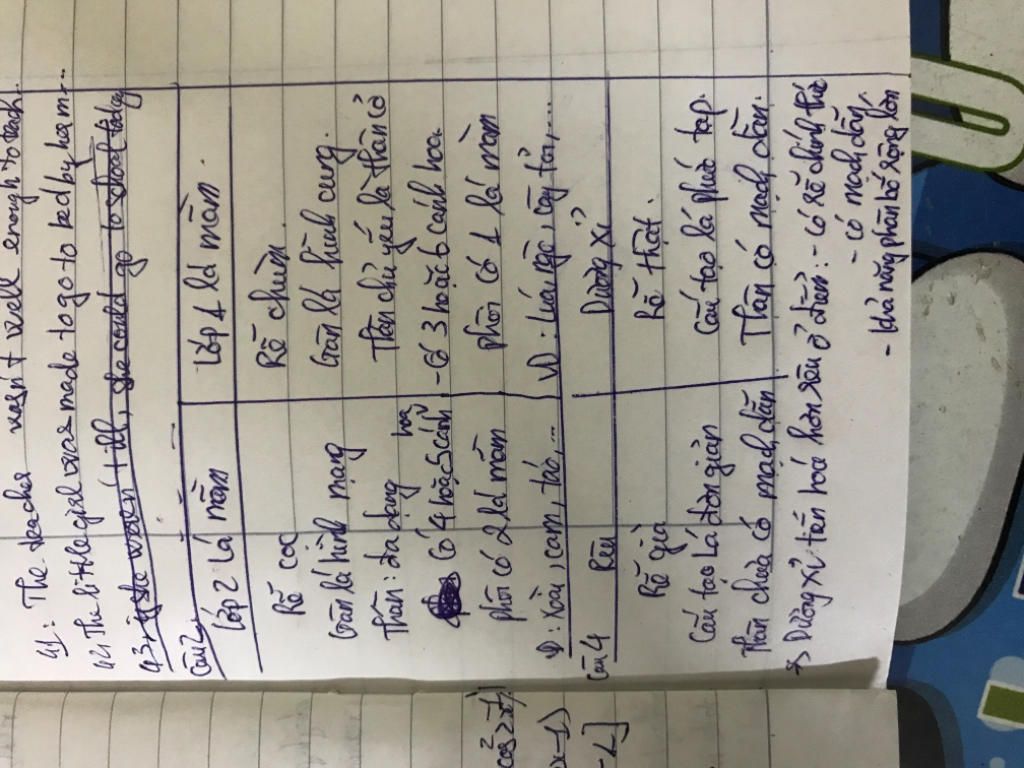 41: The teacher wasn't well enough to teach.
42: The little girl was made to go to bed by her mom...
43: if she weren't ill, she could go to school today
Câu 2
Lớp 2 lá mầm Lớp 1 lá mầm
Rễ cọc Rễ chùm
Gân lá hình mạng Gân lá hình cung.
Thân: đa dạng Thân chủ yếu là thân cỏ
Có 4 hoặc 5 cánh hoa - Có 3 hoặc 6 cánh hoa.
phôi có 2 lá mầm phôi có 1 lá mầm
VD: Xoài, cam, táo,... VD: Lúa, ngô, cây tỏi,...
Câu 4 Rêu Dương xỉ
Rễ giả Rễ thật.
Cấu tạo lá đơn giản Cấu tạo lá phức tạp.
Thân chưa có mạch dẫn Thân có mạch dẫn.
=> Dương xỉ tiến hoá hơn rêu ở điểm: - có rễ chính thức
- có mạch dẫn
- khả năng phân bố rộng lớn
cos²2x
x-1)